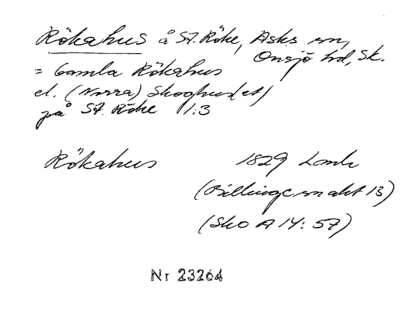 Rökahus å St. Röke, Asks sn,
Onsjö hd, Sk.
= Gamla Rökahus
el. (Norra) Skoghus(et)
på St. Röke 1:3
Rökahus 1829 Lantm
(Billinge sn akt 13)
(Sko A 14: 57)
Nr 23264